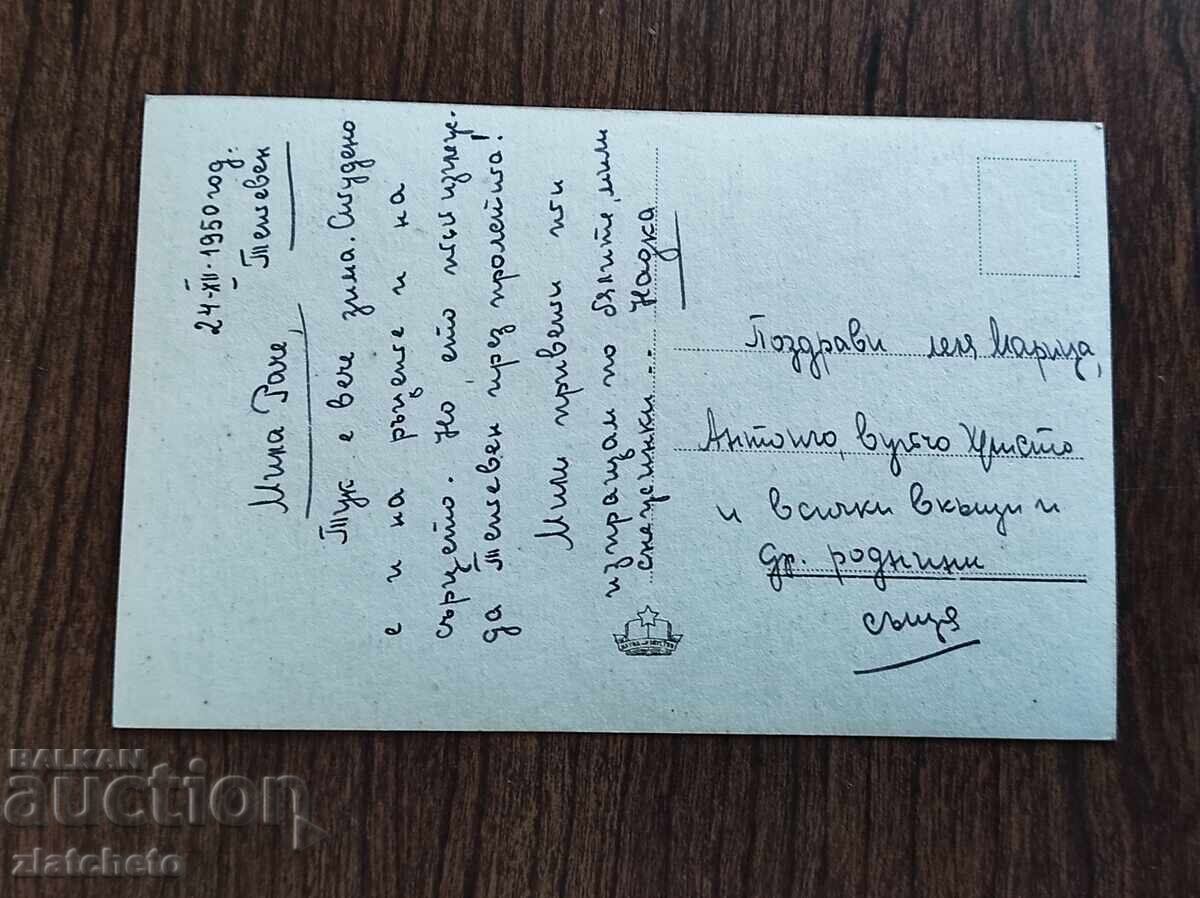 24-XII-1950 год.
Тетевен
Мила Раче,
Тук е вече зима. Студено
е и на ръцете и на
сърцето. Но, ето тъй изглеж-
да Тетевен през пролетта!
Мили привети ти
изпращам по белите, мили
снежинки...
Надка
Поздрави леля Марица,
Антония, вуйчо Христо
и всички вкъщи и
др. роднини
същя
BALKAN
auction
zlatcheto